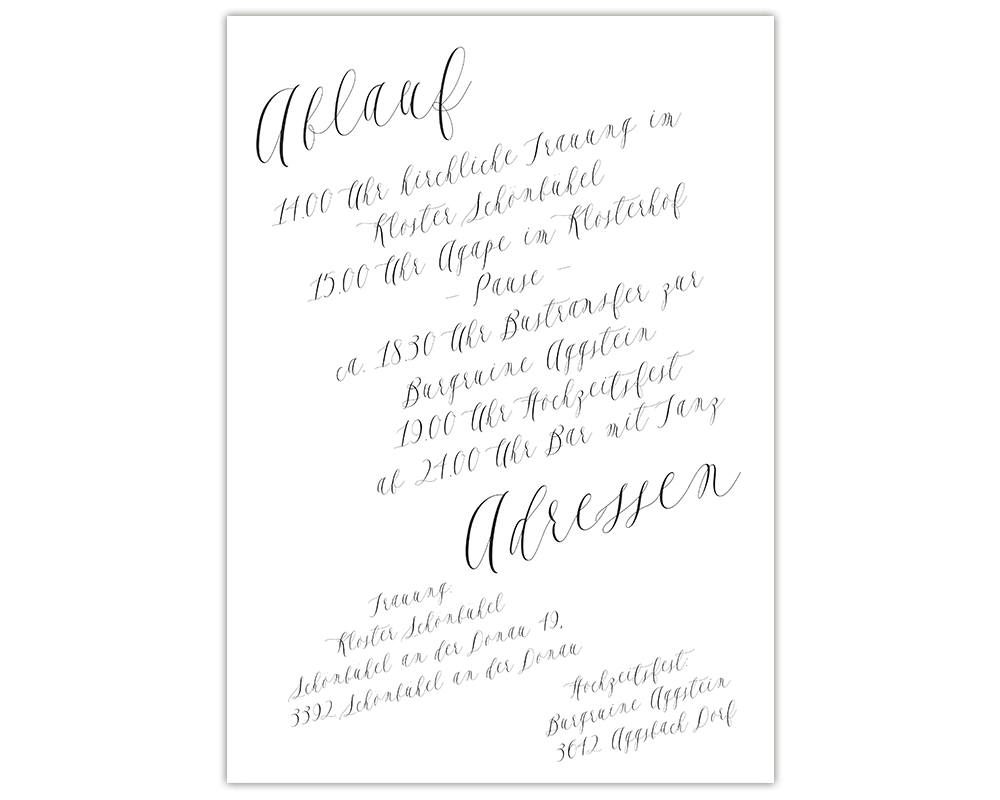 Ablauf
14.00 Uhr kirchliche Trauung im
Kloster Schönbühel
15.00 Uhr Agape im Klosterhof
– Pause –
ca. 18.30 Uhr Bustransfer zur
Burgruine Aggstein
19.00 Uhr Hochzeitsfest
ab 21.00 Uhr Bar mit Tanz
Adressen
Trauung:
Kloster Schönbühel
Schönbühel an der Donau 49,
3392 Schönbühel an der Donau
Hochzeitsfest:
Burgruine Aggstein
3642 Aggsbach Dorf